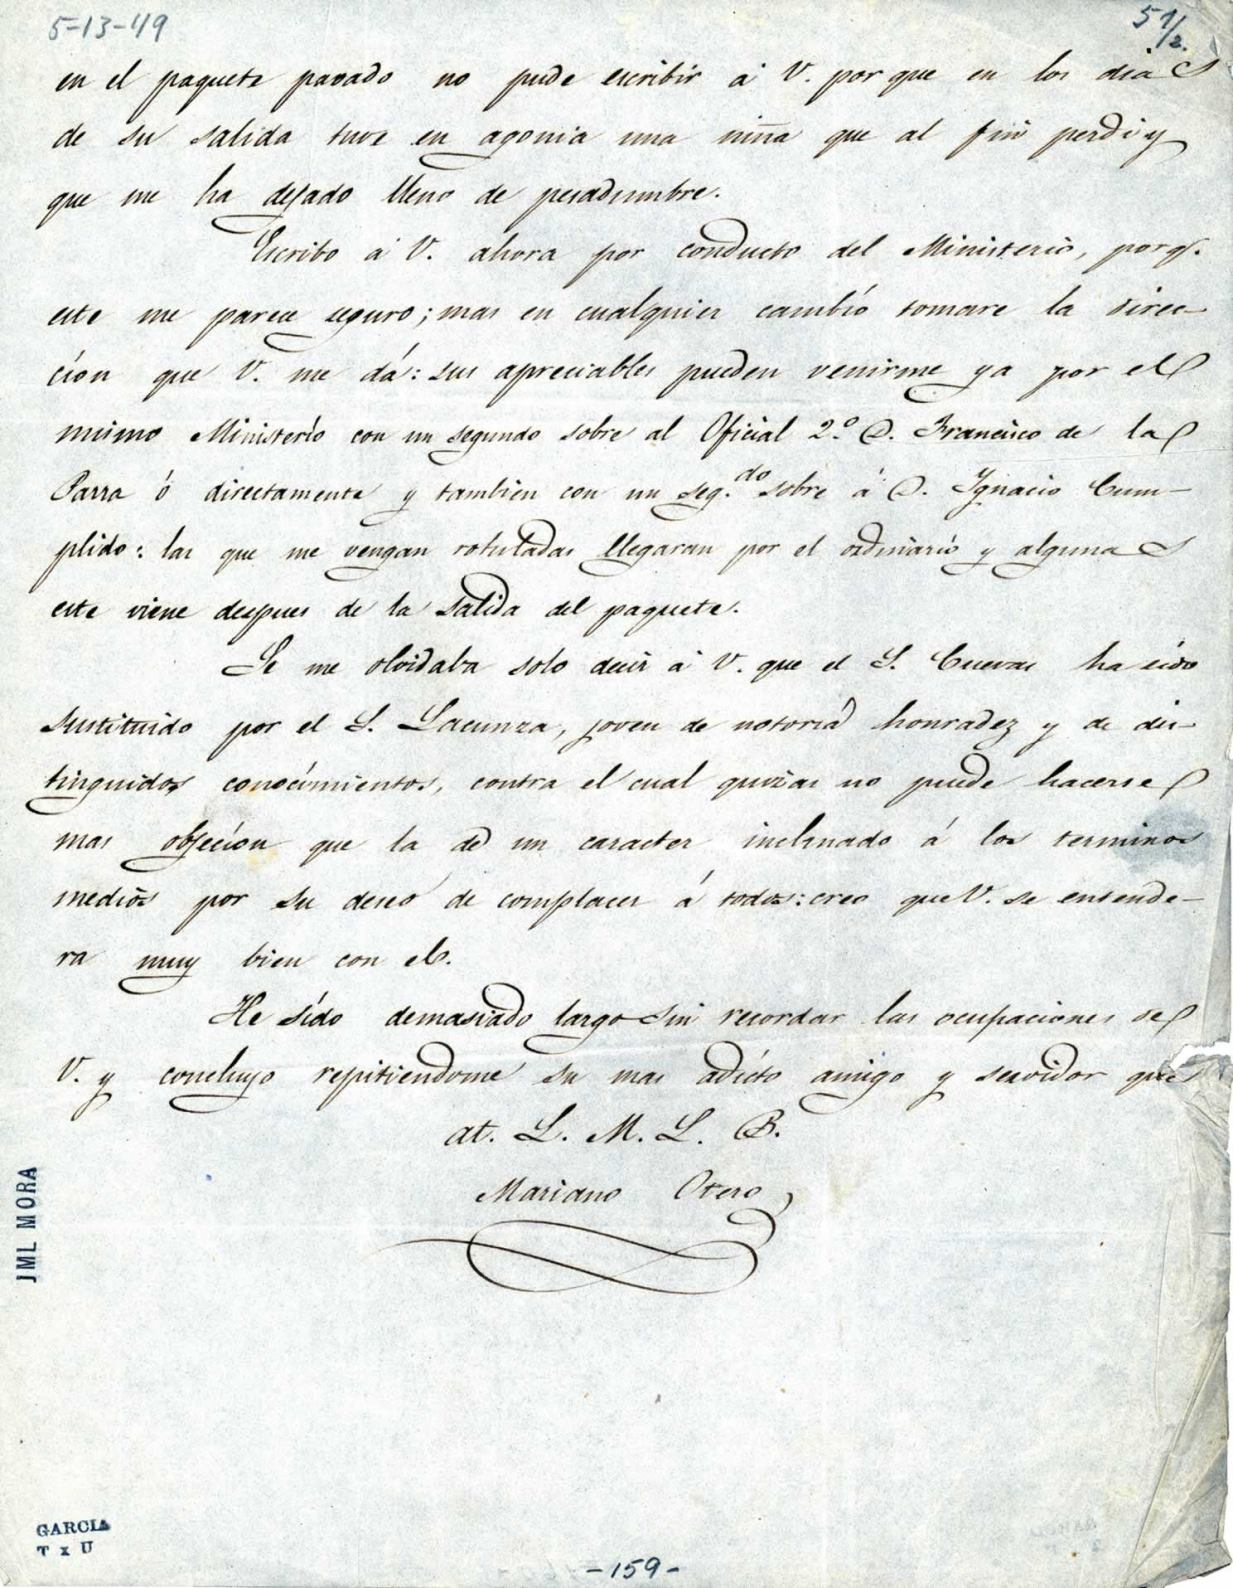 5-13-49
51/2.
en el paquete pasado no pude escribir á V. por que en los dias
de su salida tuve en agonia una niña que al fin perdi y
que me ha dejado lleno de pesadumbre.
Escribo á V. ahora por conducto del Ministerio, porq.
este me parece seguro; mas en cualquier cambío tomare la direc-
cíon que V. me dá: sus apreciables pueden venirme ya por el
mismo Ministerío con un segundo sobre al Oficial 2.º D. Francisco de la
Parra ó directamente y tambien con un seg.do sobre á D. Ygnacio Cum-
plido: las que me vengan rotuladas llegaran por el ordinarío y algunas
este viene despues de la salida del paquete.
Se me olvidaba solo decir á V. que el S. Cuevas ha sido
sustituido por el S. Lacunza, joven de notoria honradez y de dis-
tinguidos conocímientos, contra el cual quizas no puede hacerse
mas objecíon que la de un caracter inclinado á los terminos
medios por su deseo de complacer á todos: creo que V. se entende-
ra muy bien con el.
He sído demasiado largo sin recordar las ocupaciones de
V. y concluyo repitiendome su mas adícto amigo y servidor que
at. L. M. L. B.
Mariano Otero
JML MORA
GARCIA
T x U
-159-